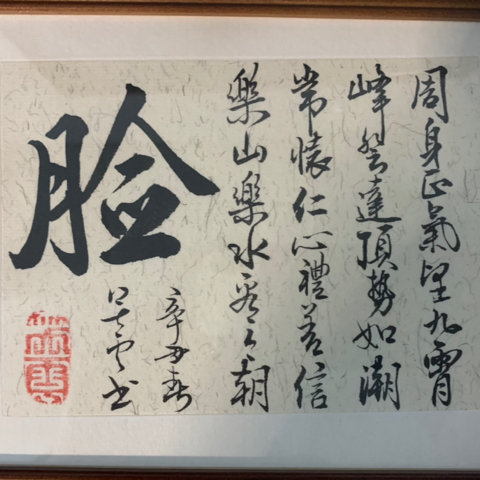 周身正氣望九霄
峰登達頂勢如潮
常懷仁心禮義信
樂山樂水看今朝
脸
辛丑春
书